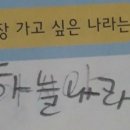 장 가고 싶은 나라는
하늘나라